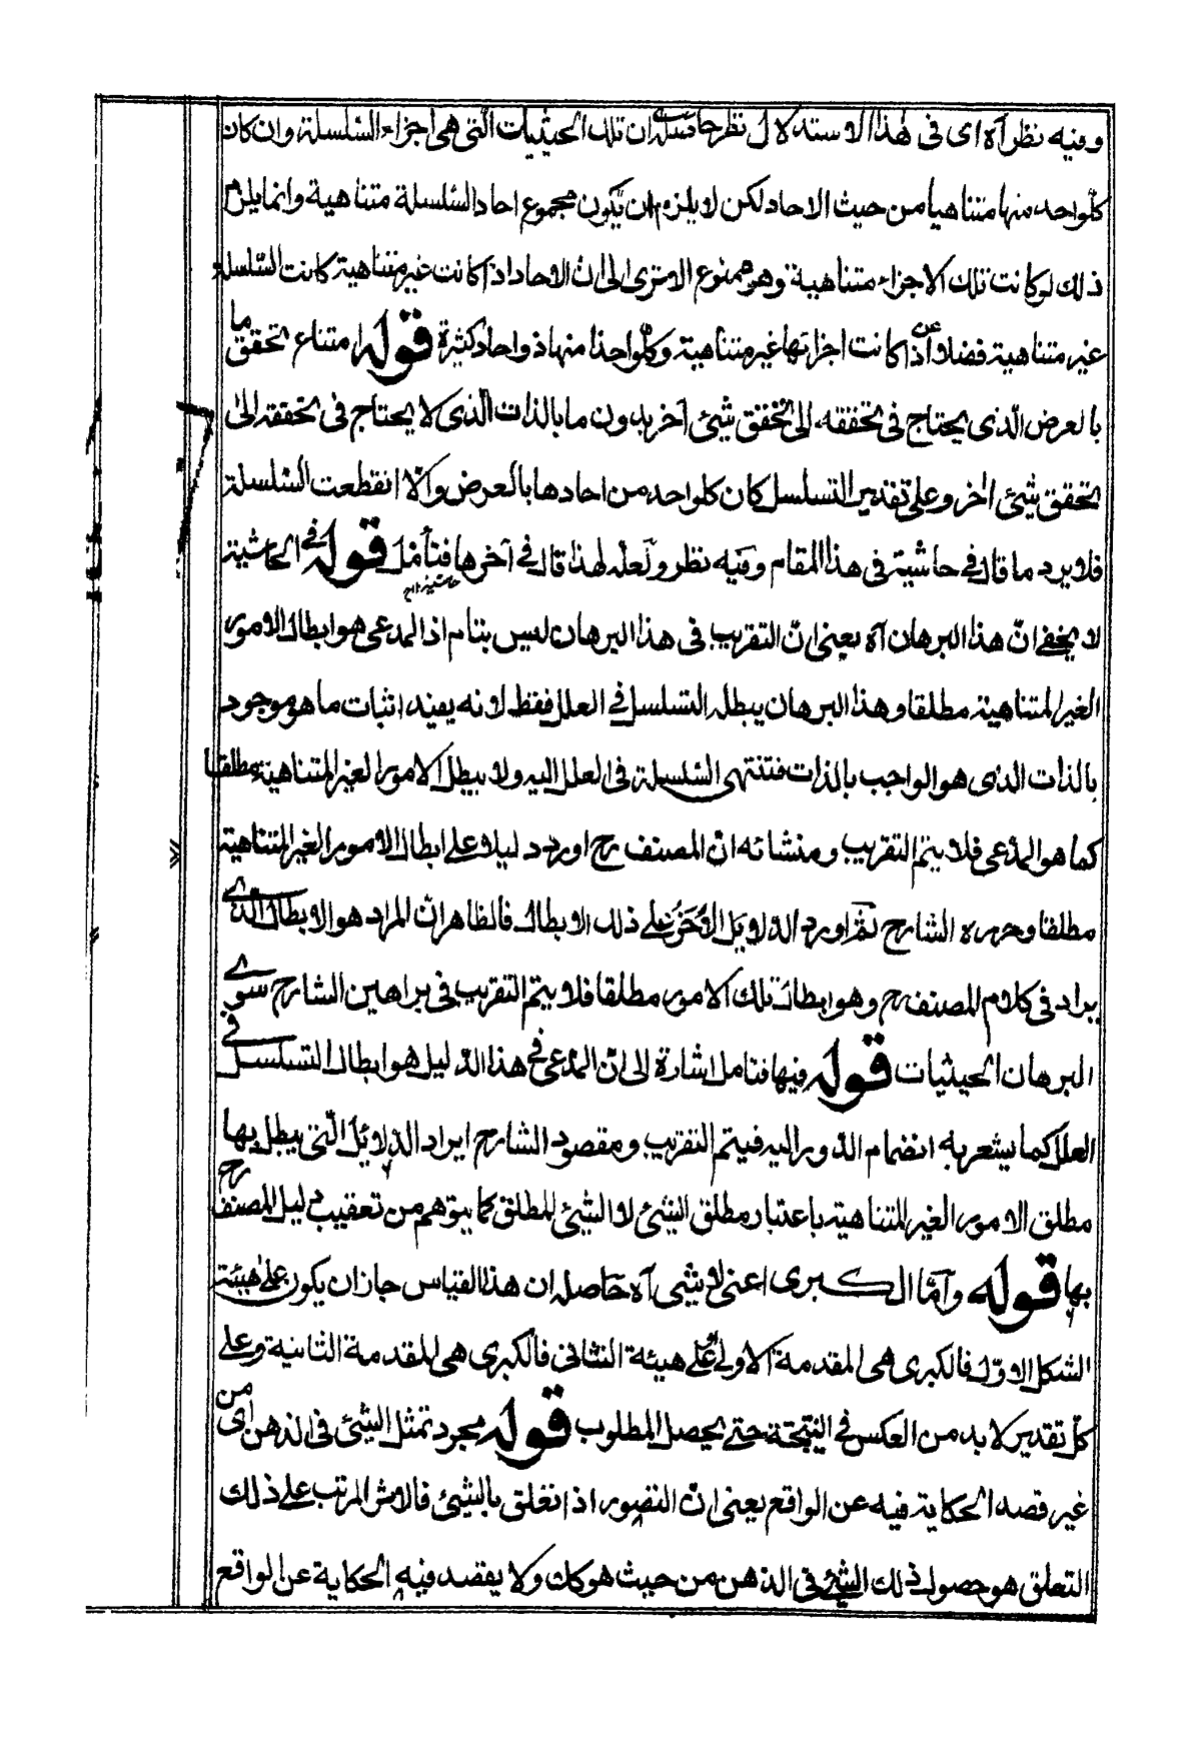 وفيه نظر آه اى فى هذا الاستدلال نظر حاصله ان تلك الحيثيات التى هى اجزاء السلسلة وان كان
كلواحد منها متناهيا من حيث الاحاد لكن لا يلزم ان يكون مجموع احاد السلسلة متناهية وانما يلزم
ذلك لو كانت تلك الاجزاء متناهية وهو ممنوع الا ترى الى ان الاحاد اذا كانت غير متناهية كانت السلسلة
غير متناهية فضلا عن اذا كانت اجزائها غير متناهية وكلواحدا منها ذو احاد كثيرة قوله امتناع تحقق ما
بالعرض الذى يحتاج فى تحققه الى تحقق شيئ آخر بدون ما بالذات الذى لا يحتاج فى تحققه الى
تحقق شيئ اخر وعلى تقدير التسلسل كان كلواحد من احادها بالعرض والا انقطعت السلسلة
فلا يرد ما قال فى حاشية فى هذا المقام وفيه نظر ولعله لهذا قال فى آخرها فتأمل قوله فى الحاشية
لا يخفى ان هذا البرهان آه يعنى ان التقريب فى هذا البرهان ليس بتام اذ المدعى هو ابطال الامور
الغير المتناهية مطلقا وهذا البرهان يبطل التسلسل فى العلل فقط لانه يفيد اثبات ما هو موجود
بالذات الذى هو الواجب بالذات فتنتهى السلسلة فى العلل اليه ولا يبطل الامور الغير المتناهية مطلقا
كما هو المدعى فلا يتم التقريب ومنشائه ان المصنف رح اورد دليلا على ابطال الامور الغير المتناهية
مطلقا وحرره الشارح ثم اورد الدلايل الأخر على ذلك الابطال فالظاهر ان المراد هو الابطال الذى
يراد فى كلام المصنف رح وهو ابطال تلك الامور مطلقا فلا يتم التقريب فى براهين الشارح سوى
البرهان الحيثيات قوله فيها فتامل اشارة الى ان المدعى فى هذا الدليل هو ابطال التسلسل فى
العلل كما يشعر به انضمام الدور اليه فيتم التقريب ومقصود الشارح ايراد الدلائل التى يبطل بها
مطلق الامور الغير المتناهية باعتبار مطلق الشيئ لا الشيئ المطلق كما يتوهم من تعقيب دليل المصنف رح
بها قوله وآما الكبرى اعنى لا شيئ آه حاصله ان هذا القياس جاز ان يكون على هيئة
الشكل الاول فالكبرى هى المقدمة الاولى او على هيئة الثانى فالكبرى هى المقدمة الثانية وعلى
كل تقدير لا بد من العكس فى النتيجة حتى يحصل المطلوب قوله مجرد تمثل الشيئ فى الذهن اى من
غير قصد الحكاية فيه عن الواقع يعنى ان التصور اذا تعلق بالشيئ فالاثر المرتب على ذلك
التعلق هو حصول ذلك الشيئ فى الذهن من حيث هو كان ولا يقصد فيه الحكاية عن الواقع